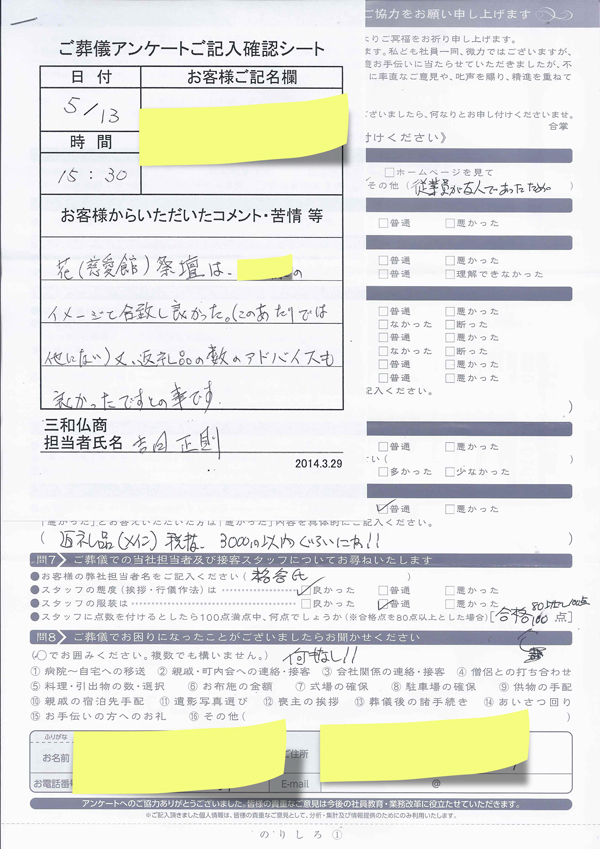 ご協力をお願い申し上げます
ご葬儀アンケートご記入確認シート
日付
お客様ご記名欄
5/13
時間
15:30
お客様からいただいたコメント・苦情 等
花(慈愛館)祭壇は、
の
イメージと合致し良かった。(このあたりでは
他にない)又、返礼品の数のアドバイスも
良かったですとの事です.
三和仏商
担当者氏名
2014.3.29
よりご冥福をお祈り申し上げます。
ます。私ども社員一同、微力ではございますが、
お手伝いに当たらせていただきましたが、不
に率直なご意見や、叱声を賜り、精進を重ねて
ございましたら、何なりとお申し付けくださいませ。
合掌
付けください》
□ホームページを見て
その他(従業員が友人であったため
□普通 □悪かった
□普通 □悪かった
□普通 □理解できなかった
□普通 □悪かった
□なかった □断った
□普通 □悪かった
□なかった □断った
□普通 □悪かった
□普通 □悪かった
記入ください。
)
□普通 □悪かった
さい( )
□多かった □少なかった
☑普通 □悪かった
「悪かった」とお答えいただいた方は「悪かった」内容を具体的にご記入ください。
(返礼品(メイン)税抜 3000円以内ぐらいにね!! )
問7 ご葬儀での当社担当者及び接客スタッフについてお尋ねいたします
●お客様の弊社担当者名をご記入ください( 氏 )
●スタッフの態度(挨拶・行儀作法)は ☑良かった □普通 □悪かった
●スタッフの服装は □良かった ☑普通 □悪かった
●スタッフに点数を付けるとしたら100点満点中、何点でしょうか(※合格点を80点以上とした場合)[合格 100 点]
問8 ご葬儀でお困りになったことがございましたらお聞かせください
(○でお囲みください。複数でも構いません。) 何もなし!!
①病院~自宅への移送 ②親戚・町内会への連絡・接客 ③会社関係の連絡・接客 ④僧侶との打ち合わせ
⑤料理・引出物の数・選択 ⑥お布施の金額 ⑦式場の確保 ⑧駐車場の確保 ⑨供物の手配
⑩親戚の宿泊先手配 ⑪遺影写真選び ⑫喪主の挨拶 ⑬葬儀後の諸手続き ⑭あいさつ回り
⑮お手伝いの方へのお礼 ⑯その他( )
ふりがな
お名前
ご住所
お電話番号
E-mail
@
アンケートへのご協力ありがとうございました。皆様の貴重なご意見は今後の社員教育・業務改革に役立たせていただきます。
※ご記入頂きました個人情報は、皆様の貴重なご意見として、分析・集計及び情報提供のためにのみ利用いたします。
のりしろ①